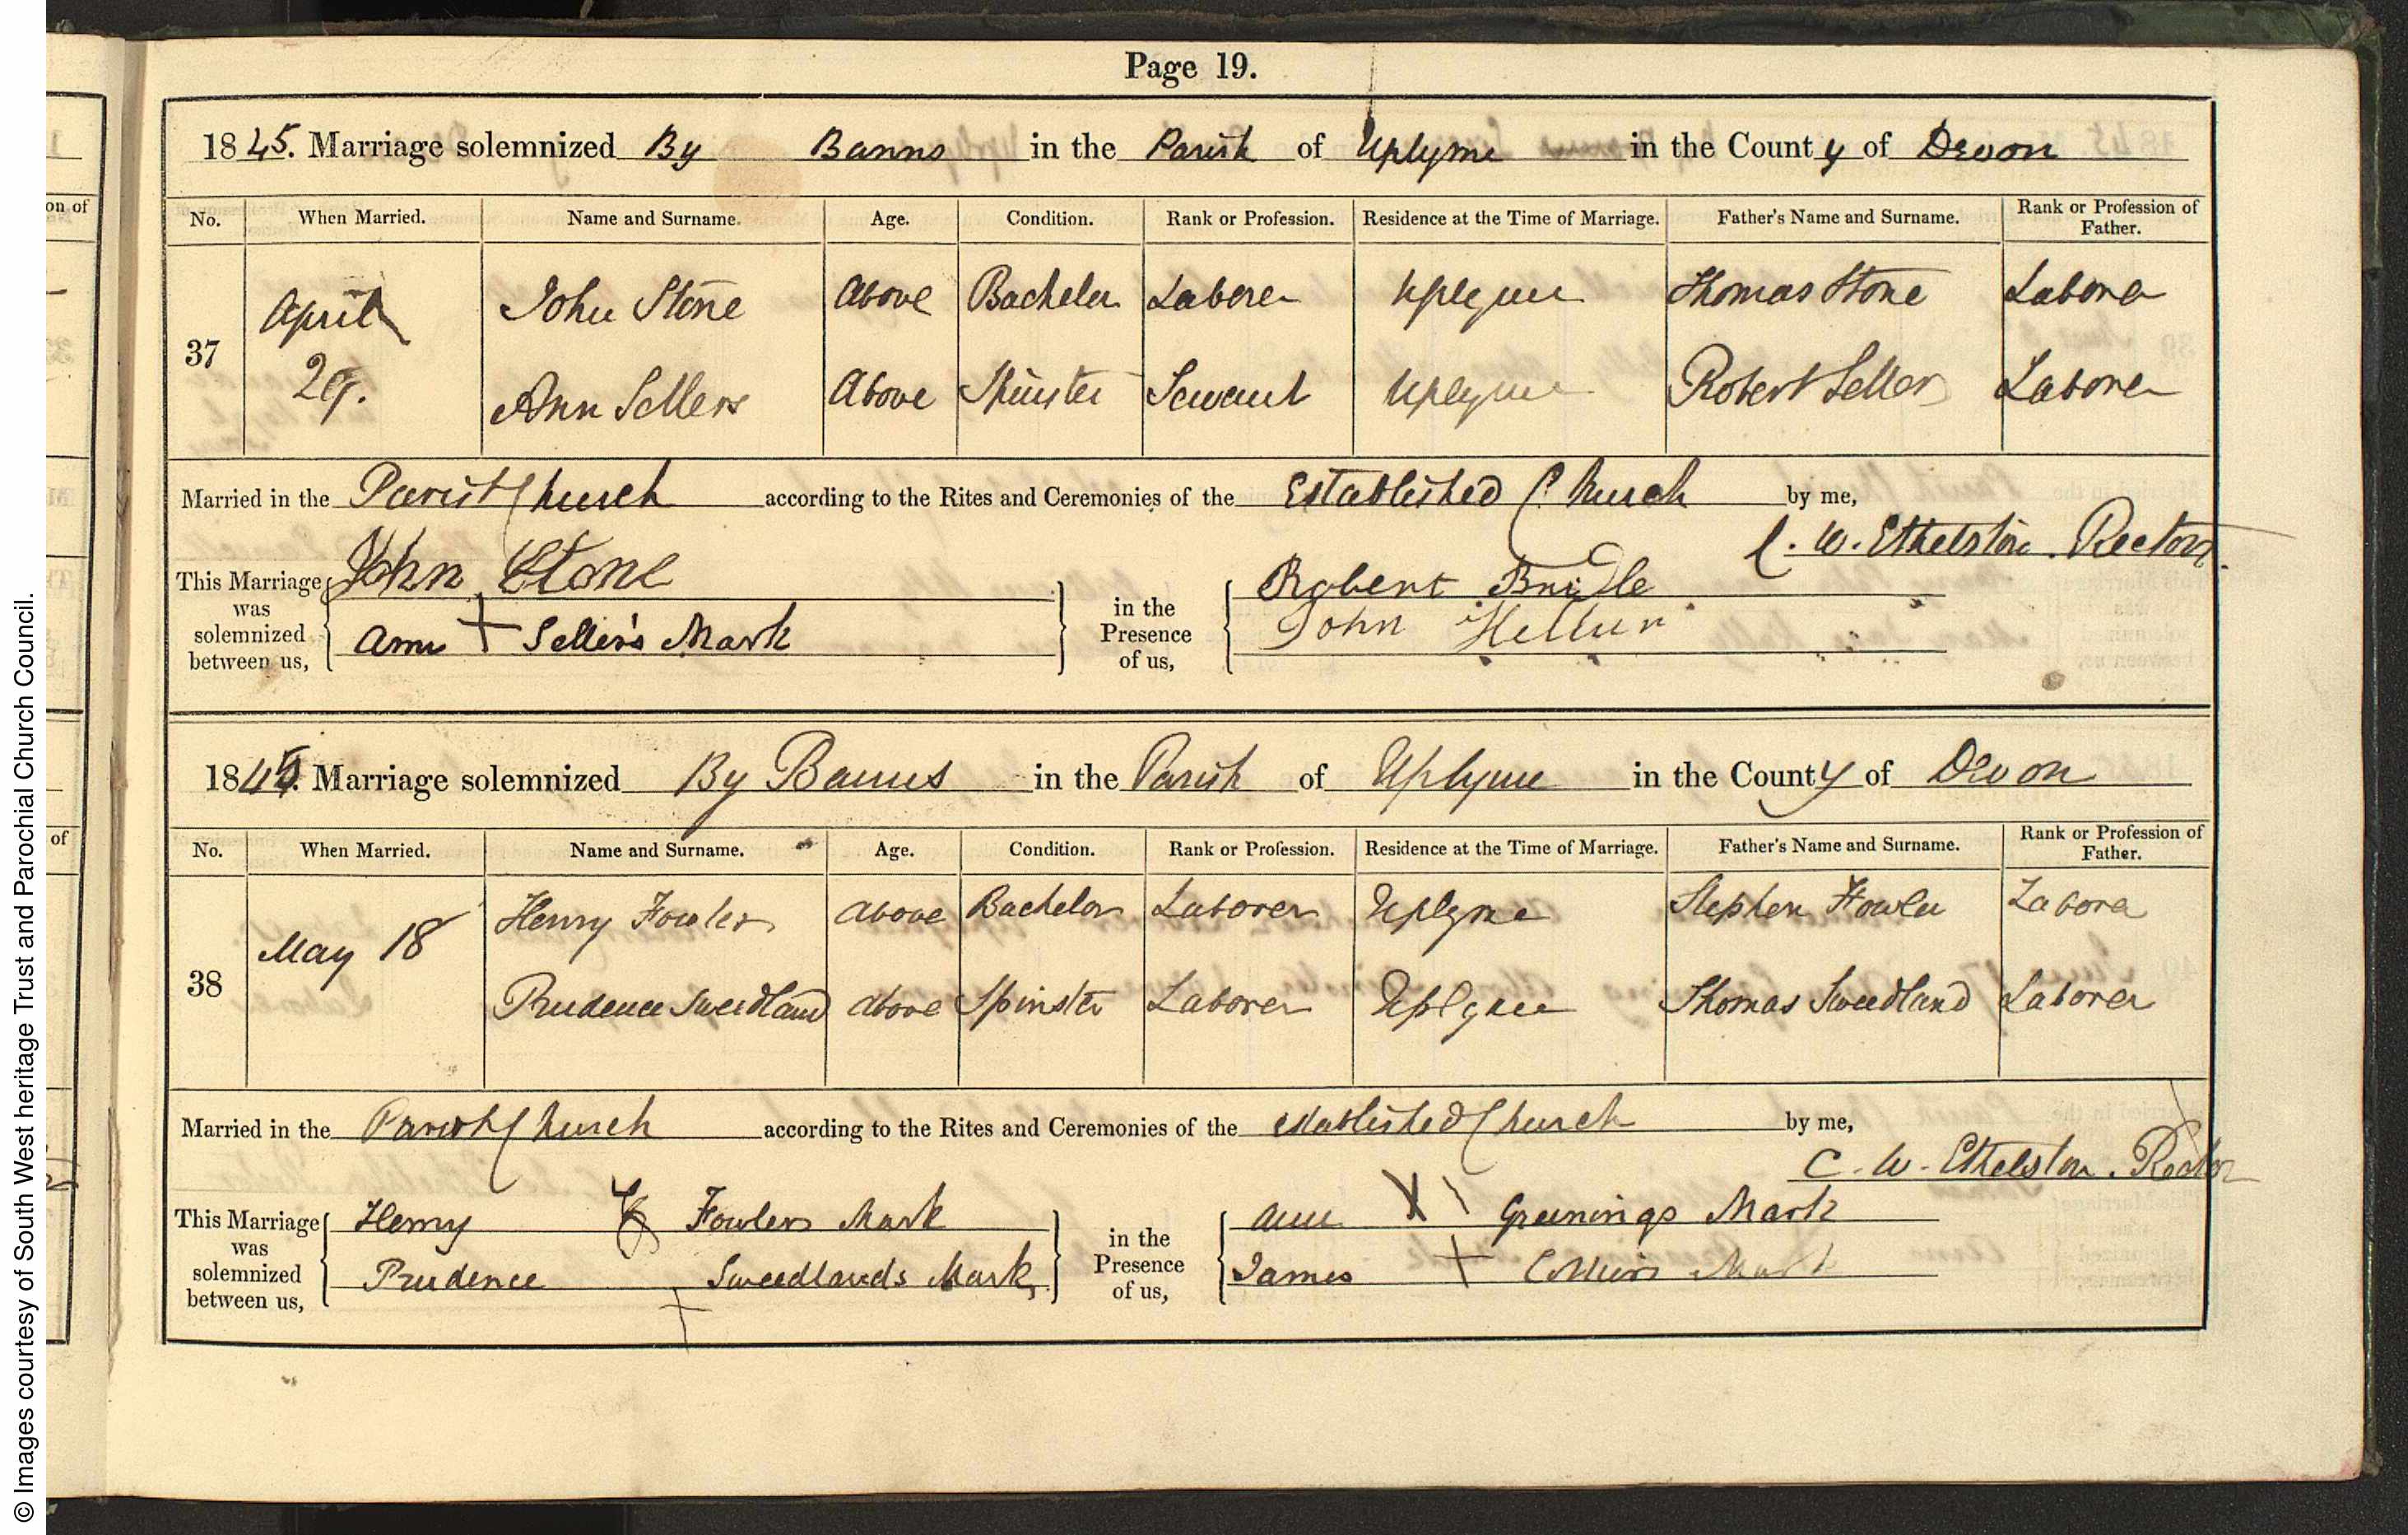 Page 19.
1845. Marriage solemnized By Banns in the Parish of Uplyme in the County of Devon
No. When Married. Name and Surname. Age. Condition. Rank or Profession. Residence at the Time of Marriage. Father's Name and Surname. Rank or Profession of Father.
37 April 29. John Stone Above Bachelor Laborer Uplyme Thomas Stone Laborer
Ann Sellers Above Spinster Servant Uplyme Robert Sellers Laborer
Married in the Parish Church according to the Rites and Ceremonies of the Established Church by me,
C. W. Ethelston. Rector.
This Marriage was solemnized between us, John Stone in the Presence of us, Robert Bridle
Ann + Seller's Mark John
1845. Marriage solemnized By Banns in the Parish of Uplyme in the County of Devon
No. When Married. Name and Surname. Age. Condition. Rank or Profession. Residence at the Time of Marriage. Father's Name and Surname. Rank or Profession of Father.
38 May 18 Henry Fowler above Bachelor Laborer Uplyme Stephen Fowler Laborer
Prudence Sweedland above Spinster Laborer Uplyme Thomas Sweedland Laborer
Married in the Parish Church according to the Rites and Ceremonies of the established Church by me,
C. W. Ethelston. Rector
This Marriage was solemnized between us, Henry Fowlers Mark in the Presence of us, Ann X Greenings Mark
Prudence + Sweedlands Mark James + Collins Mark
on of
of
© Images courtesy of South West heritage Trust and Parochial Church Council.